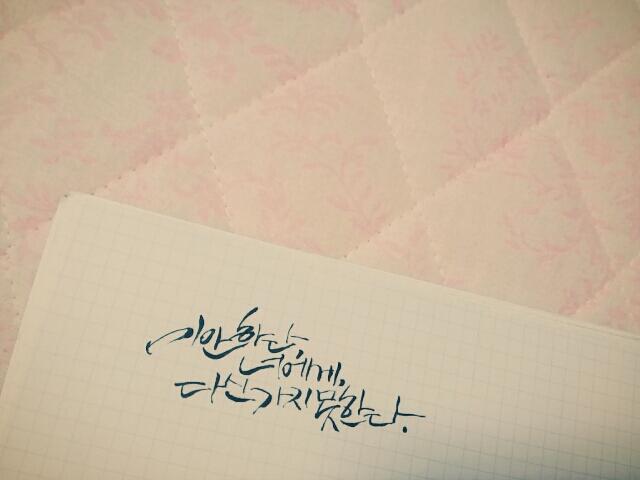 미안하다,
너에게,
다신 가지 못한다.